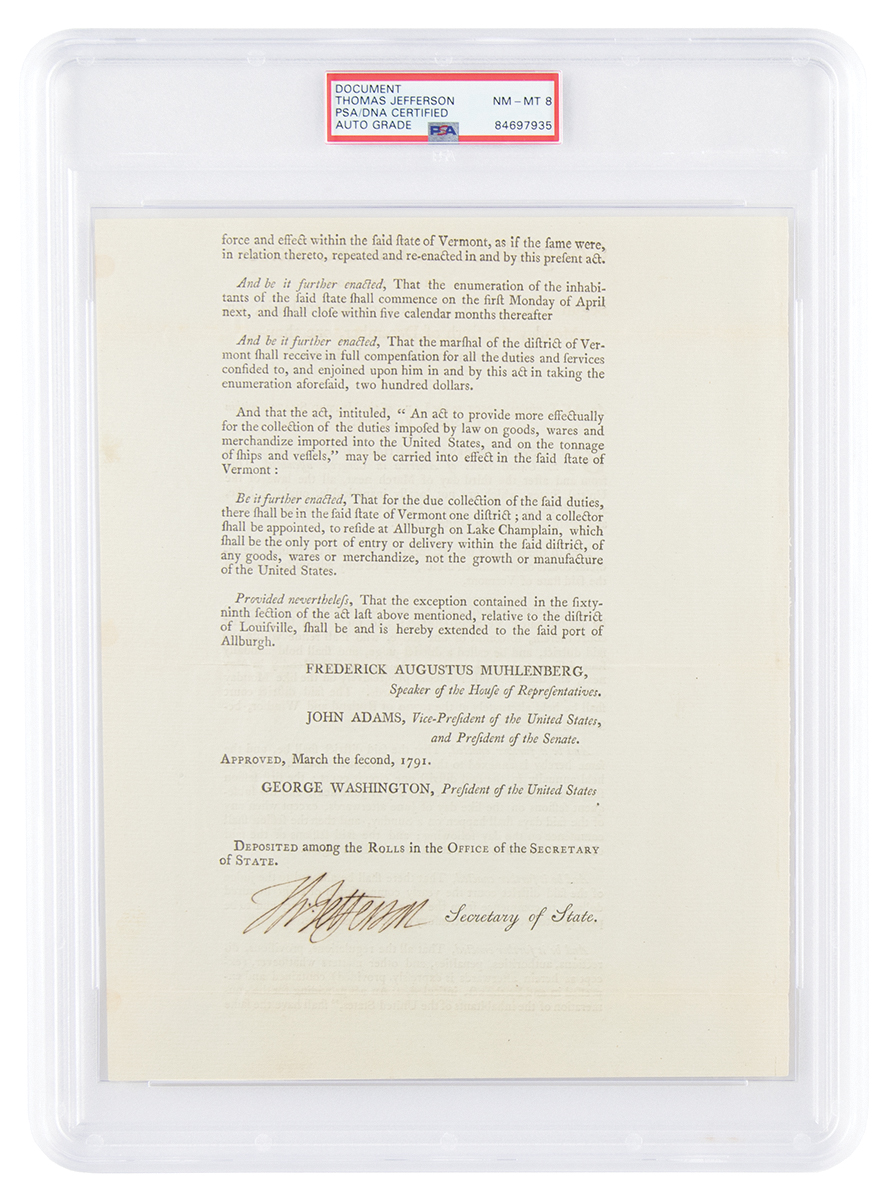 DOCUMENT
THOMAS JEFFERSON NM – MT 8
PSA/DNA CERTIFIED
AUTO GRADE PSA 84697935
force and effect within the ſaid ſtate of Vermont, as if the ſame were,
in relation thereto, repeated and re-enacted in and by this preſent act.
And be it further enacted, That the enumeration of the inhabi-
tants of the ſaid ſtate ſhall commence on the firſt Monday of April
next, and ſhall cloſe within five calendar months thereafter
And be it further enacted, That the marſhal of the diſtrict of Ver-
mont ſhall receive in full compenſation for all the duties and ſervices
confided to, and enjoined upon him in and by this act in taking the
enumeration aforeſaid, two hundred dollars.
And that the act, intituled, “ An act to provide more effectually
for the collection of the duties impoſed by law on goods, wares and
merchandize imported into the United States, and on the tonnage
of ſhips and veſſels,” may be carried into effect in the ſaid ſtate of
Vermont :
Be it further enacted, That for the due collection of the ſaid duties,
there ſhall be in the ſaid ſtate of Vermont one diſtrict ; and a collector
ſhall be appointed, to reſide at Allburgh on Lake Champlain, which
ſhall be the only port of entry or delivery within the ſaid diſtrict, of
any goods, wares or merchandize, not the growth or manufacture
of the United States.
Provided nevertheleſs, That the exception contained in the ſixty-
ninth ſection of the act laſt above mentioned, relative to the diſtrict
of Louiſville, ſhall be and is hereby extended to the ſaid port of
Allburgh.
FREDERICK AUGUSTUS MUHLENBERG,
Speaker of the Houſe of Repreſentatives.
JOHN ADAMS, Vice-Preſident of the United States,
and Preſident of the Senate.
APPROVED, March the ſecond, 1791.
GEORGE WASHINGTON, Preſident of the United States
DEPOSITED among the ROLLS in the OFFICE of the SECRETARY
of STATE.
Th: Jefferson Secretary of State.